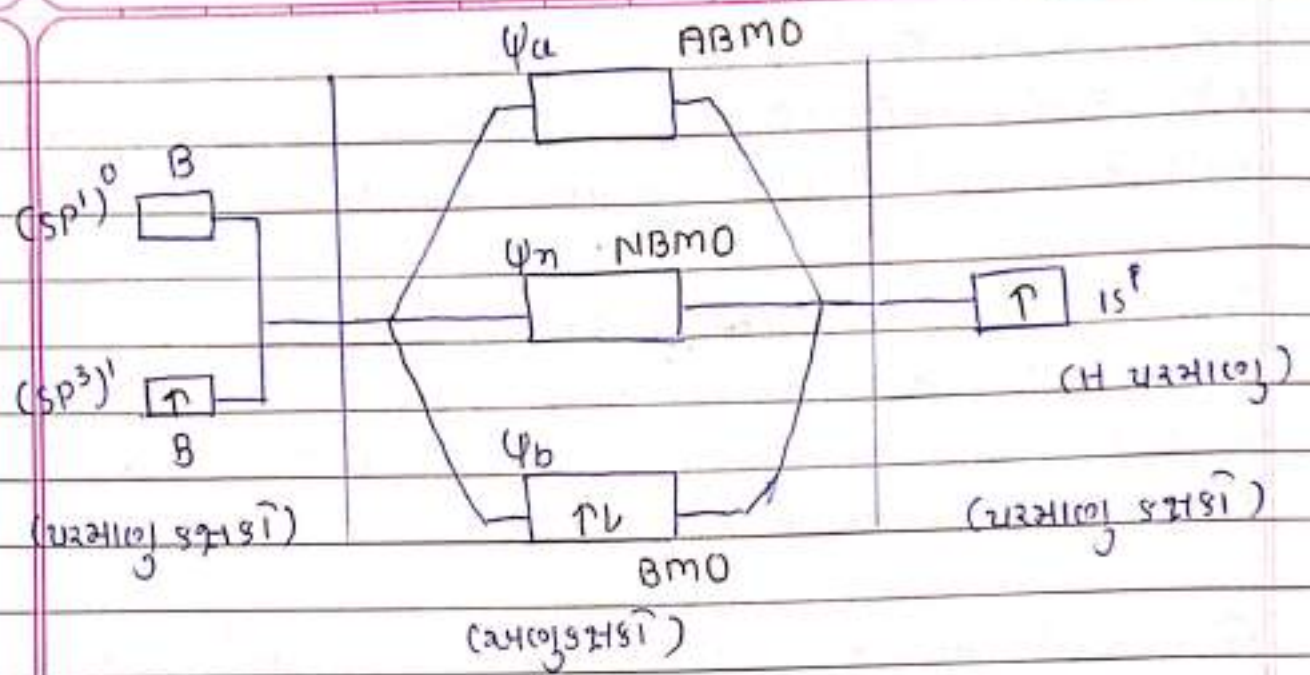 ψa ABMO
(sp¹)⁰ B
ψn NBMO
↑ 1s¹
(H પરમાણુ)
(sp³)¹ ↑
B
ψb
↑↓
BMO
(પરમાણુ કક્ષકો)
(પરમાણુ કક્ષકો)
(આણ્વુકક્ષકો)